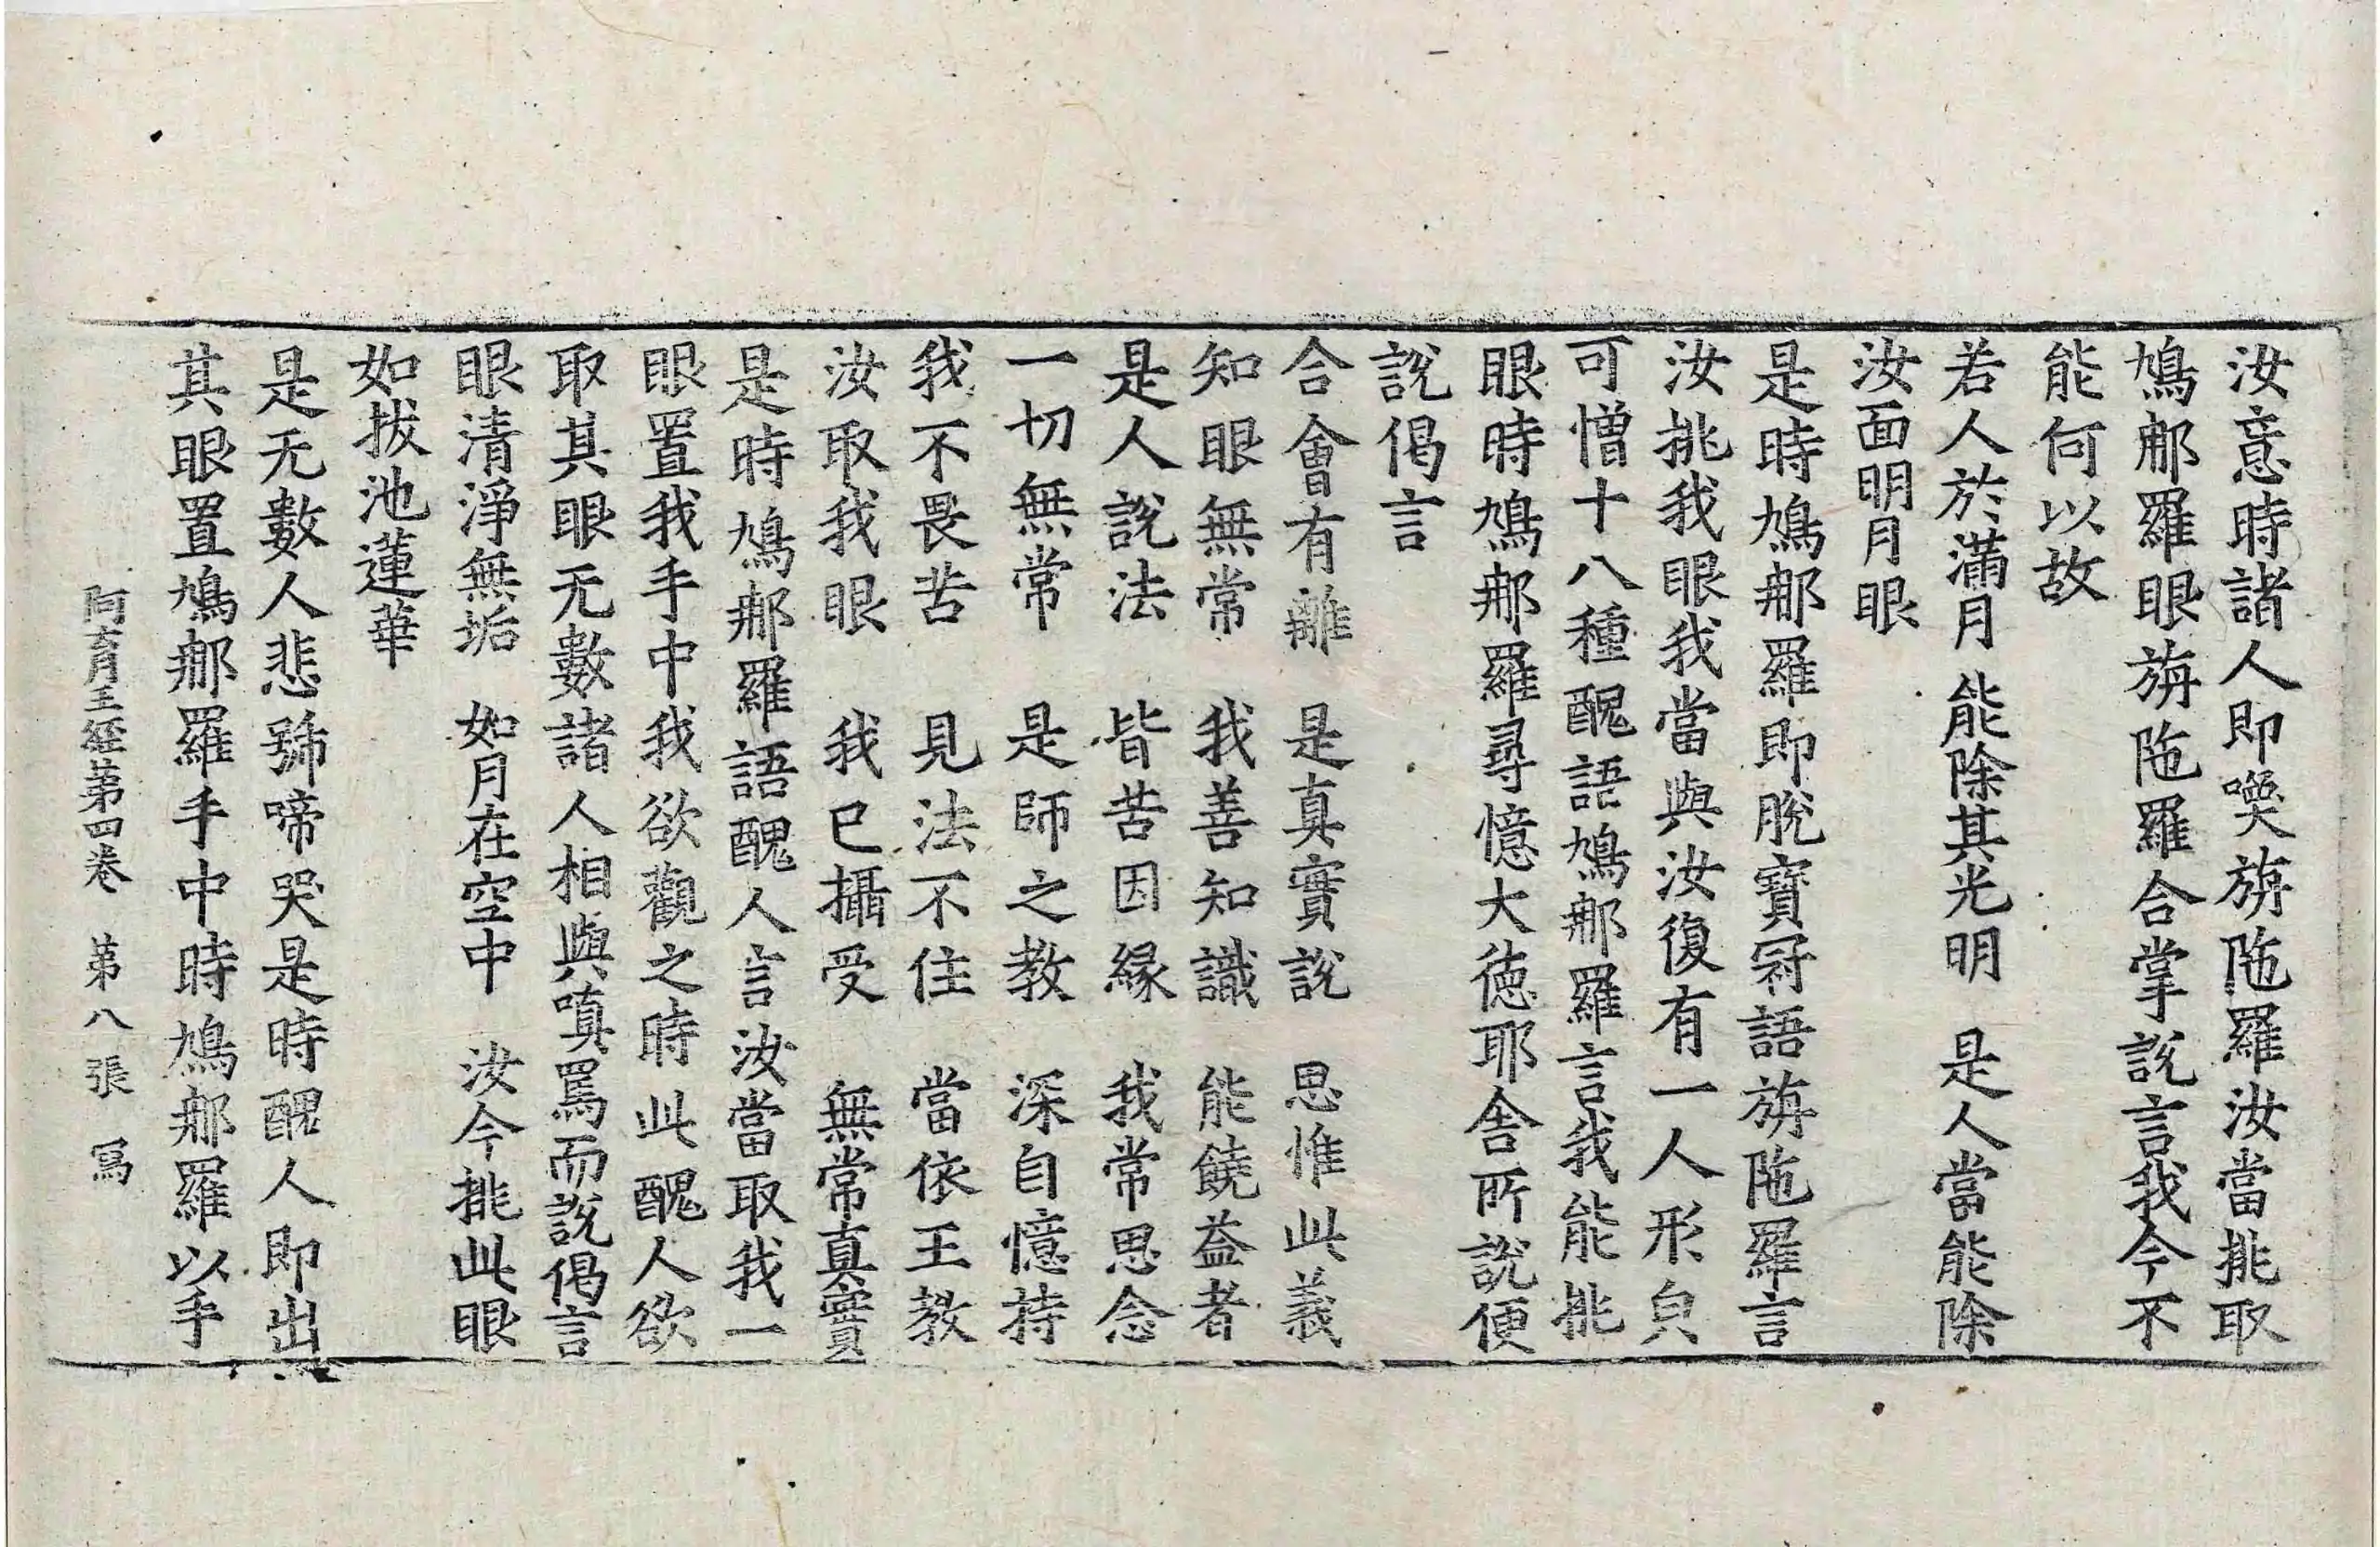 汝意時諸人即喚旃陁羅汝當挑取
鳩𨙻羅眼旃陁羅合掌說言我今不
能何以故
若人於滿月　能除其光明　是人當能除
汝面明月眼
是時鳩𨙻羅即脫寶冠語旃陁羅言
汝挑我眼我當與汝復有一人形皃
可憎十八種醜語鳩𨙻羅言我能挑
眼時鳩𨙻羅尋憶大德耶舍所說便
說偈言
合會有離　是真實說　思惟此義
知眼無常　我善知識　能饒益者
是人說法　皆苦因緣　我常思念
一切無常　是師之教　深自憶持
我不畏苦　見法不住　當依王教
汝取我眼　我已攝受　無常真實
是時鳩𨙻羅語醜人言汝當取我一
眼置我手中我欲觀之時此醜人欲
取其眼无數諸人相與嗔罵而說偈言
眼清淨無垢　如月在空中　汝今挑此眼
如拔池蓮華
是无數人悲號啼哭是時醜人即出
其眼置鳩𨙻羅手中時鳩𨙻羅以手
阿育王經第四卷　第八張　寫